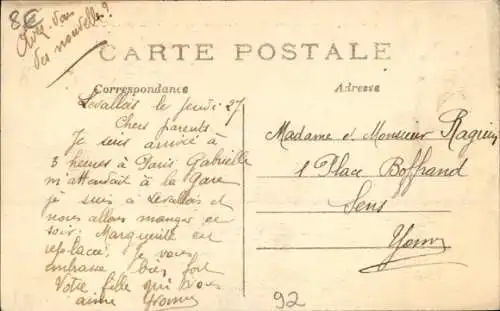 8€
Avez-vous
des nouvelles?
CARTE POSTALE
Correspondance
Adresse
Levallois le jeudi 27
Chers parents
Je suis arrivé à
3 heures à Paris Gabrielle
m'attendait à la Gare
je suis à Levallois et
nous allons manger ce
soir. Marguerite est
replacée. Je vous
embrasse bien fort
Votre fille qui vous
aime Yvonne
Madame et Monsieur
1 Place Boffrand
Sens
Yonne
92